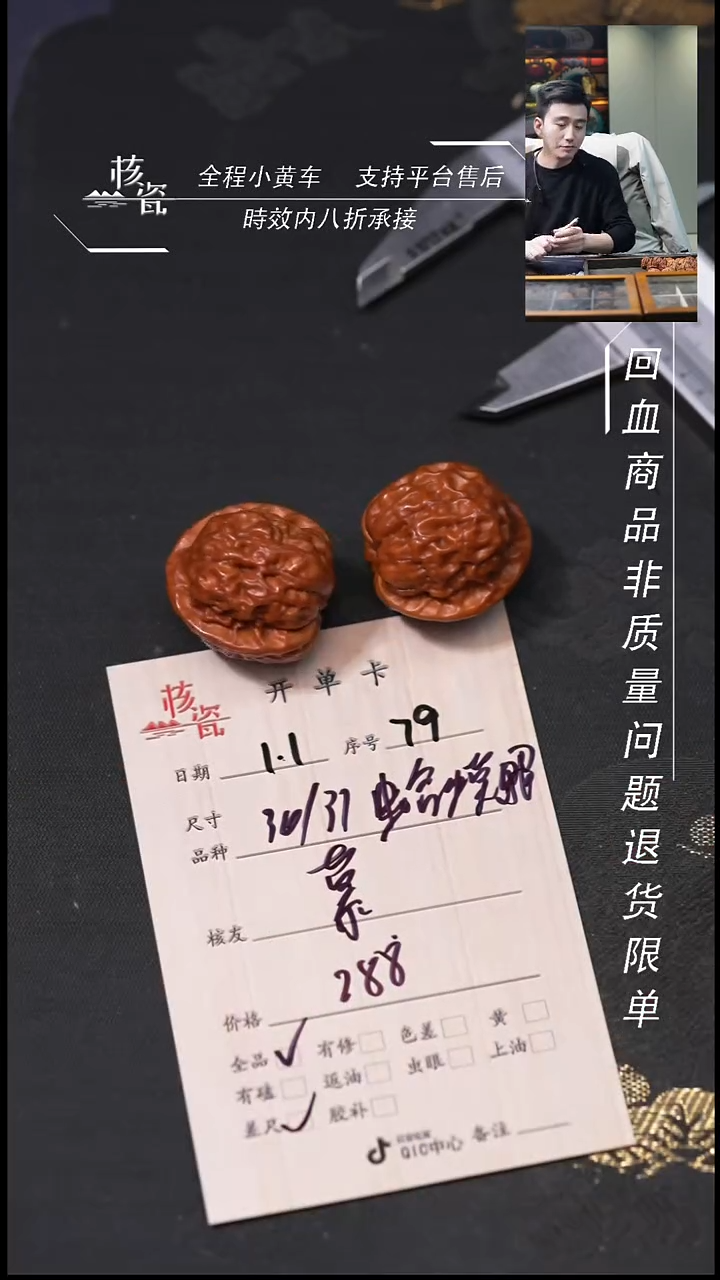 核瓷
全程小黄车 支持平台售后
時效内八折承接
回血商品非质量问题退货限单
核瓷
开单卡
日期 1.1 序号 79
尺寸
品种
核友
价格 288
全品 ✓ 有修 色差 黄
有磕 返油 虫眼 上油
差尺 ✓ 胶补
QIC中心 备注